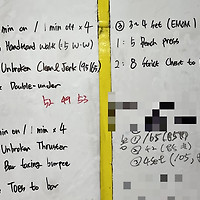 min on / 1 min off × 4
Handstand Walk (:5 W·W)
Unbroken Clean & Jerk (95/65)
Double-under
52 49 53
min on / 1 min × 4
Unbroken Thruster
Bar facing burpee
Toes to bar
③ 3~4 Set (EMOM)
1: 5 Bench press
2: 8 Strict Chest to
① 165 (85%)
② 42
③ 4set (105,